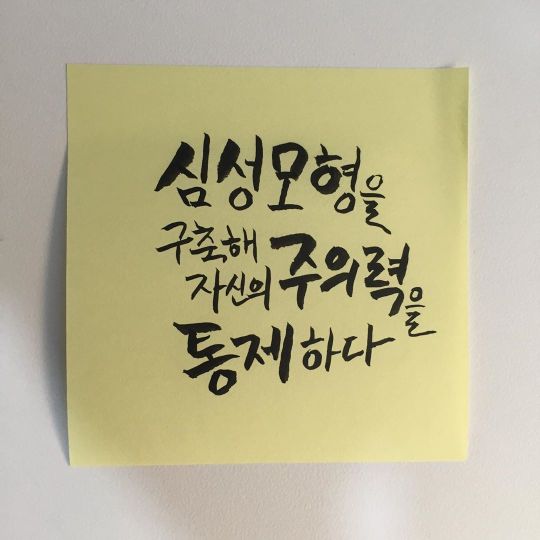 심성모형을
구축해
자신의 주의력을
통제하다